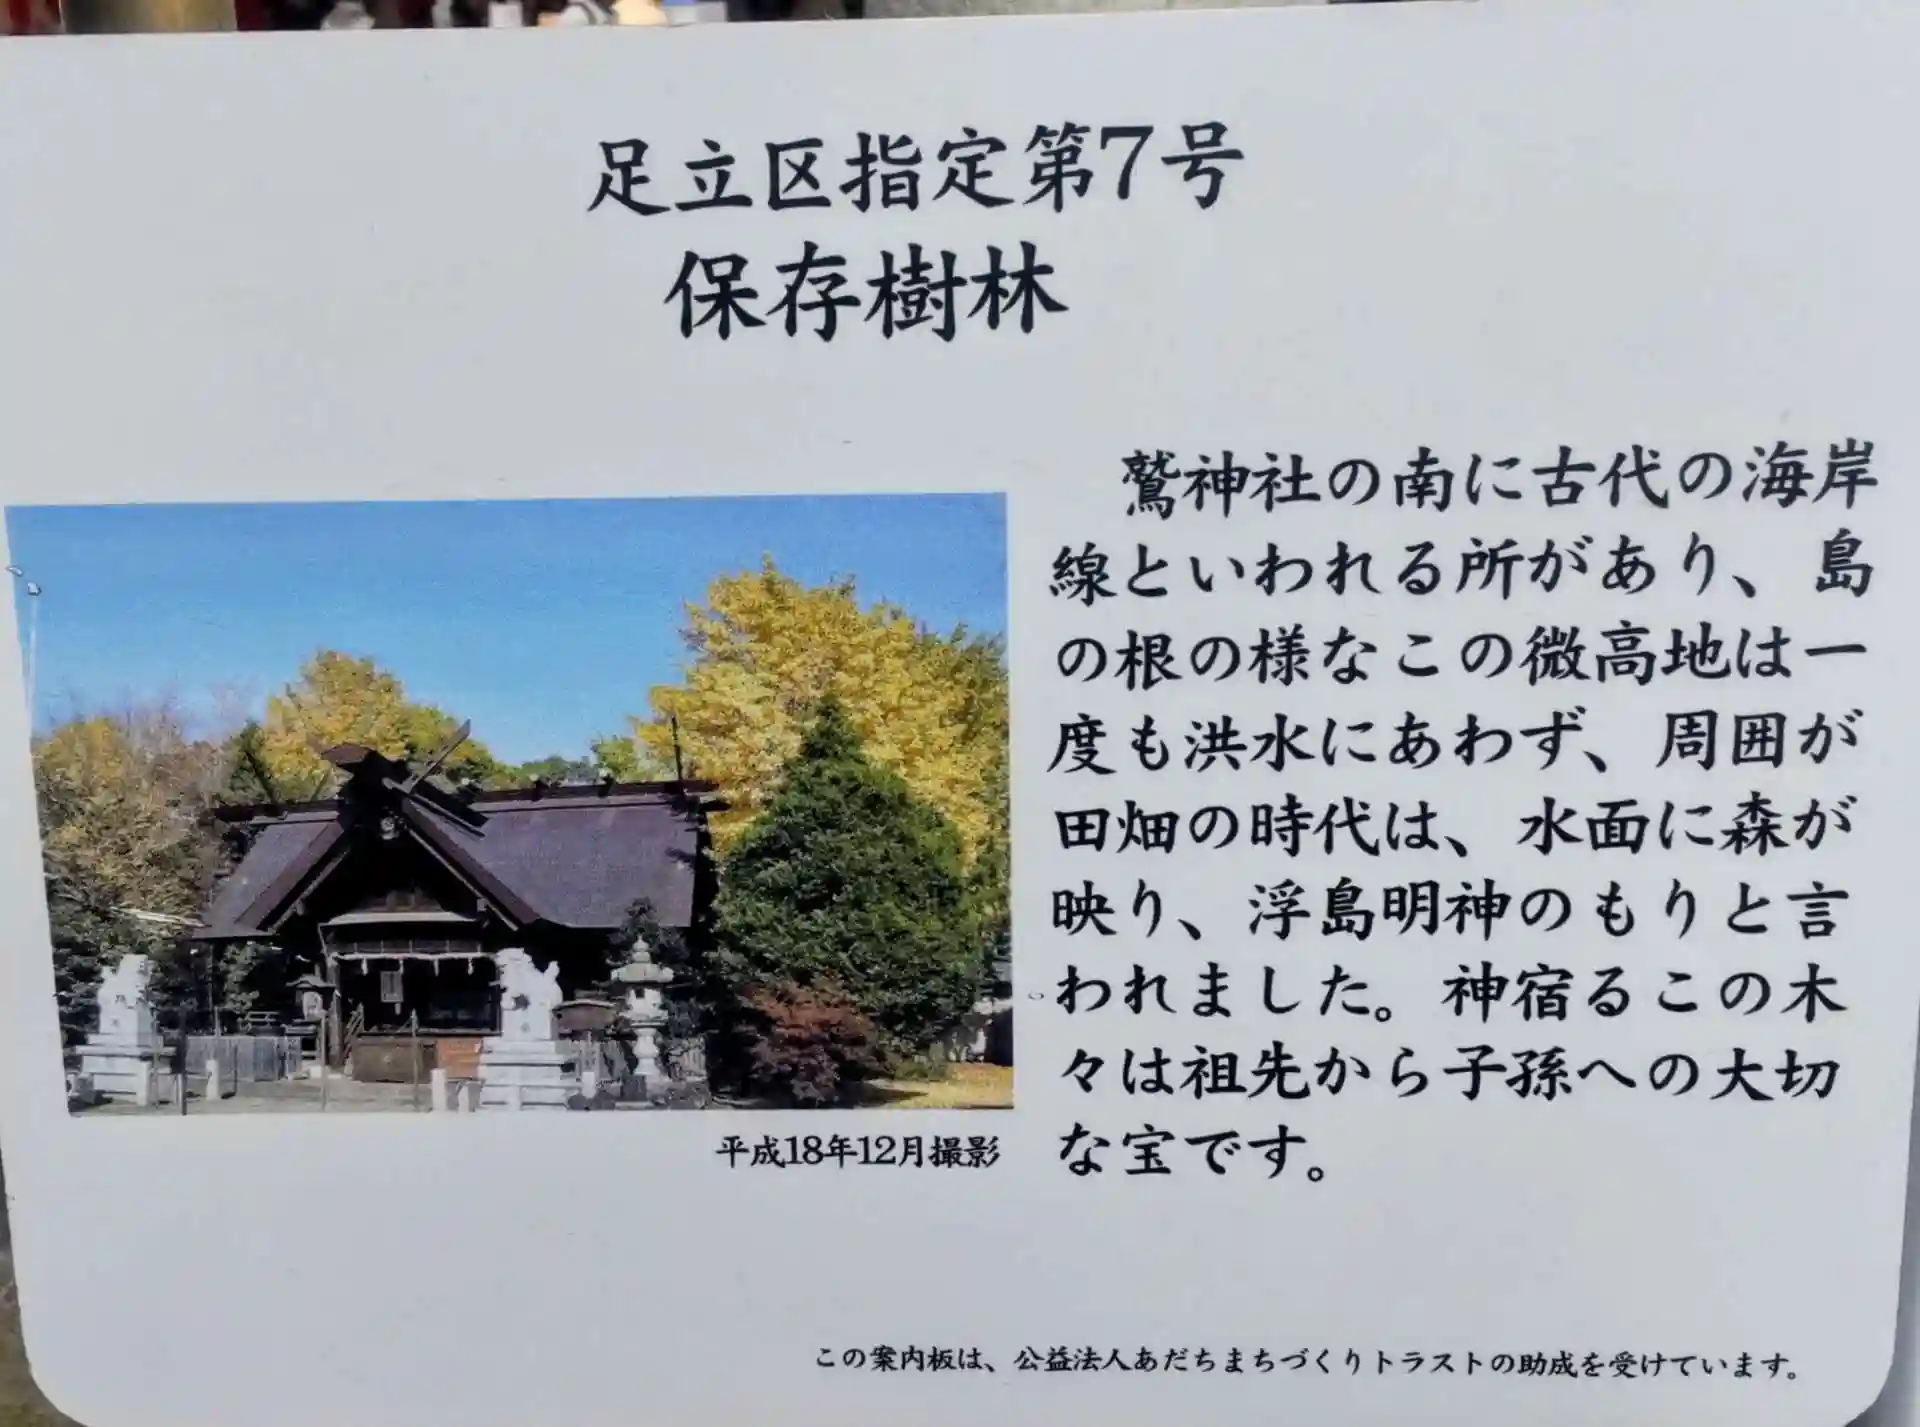 足立区指定第7号
保存樹林
鷲神社の南に古代の海岸
線といわれる所があり、島
の根の様なこの微高地は一
度も洪水にあわず、周囲が
田畑の時代は、水面に森が
映り、浮島明神のもりと言
われました。神宿るこの木
々は祖先から子孫への大切
な宝です。
平成18年12月撮影
この案内板は、公益法人あだちまちづくりトラストの助成を受けています。